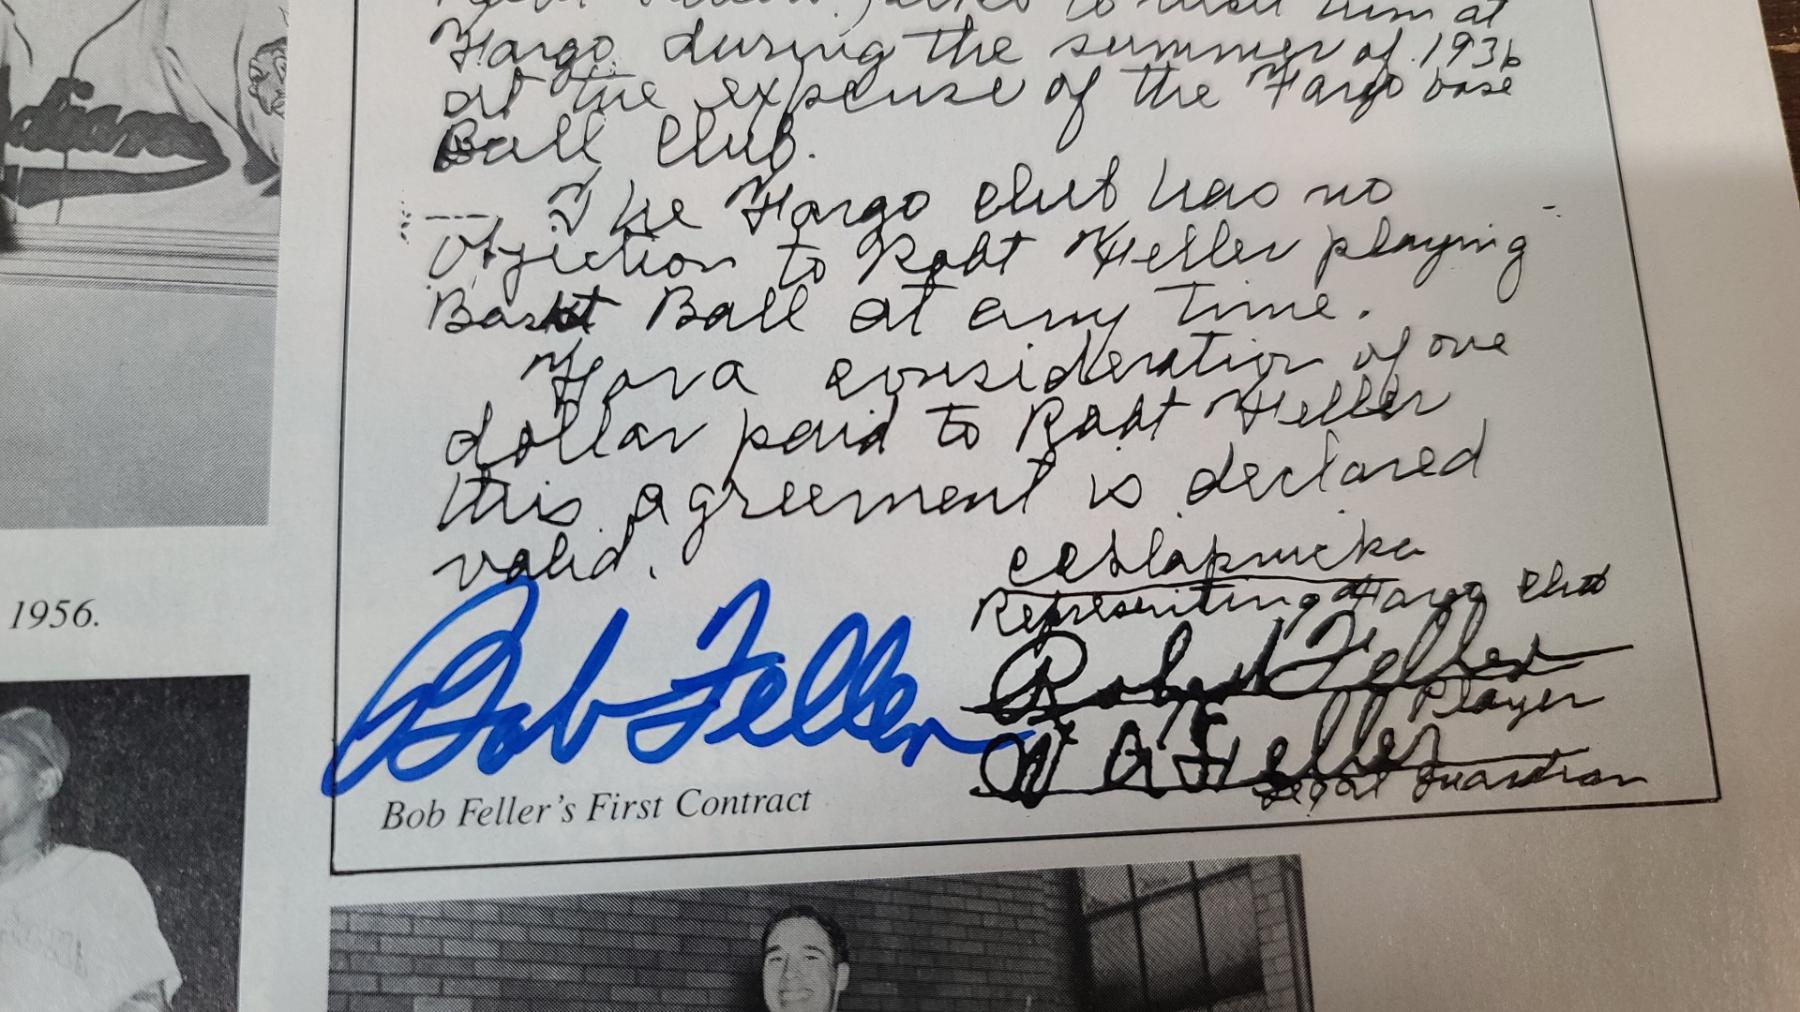 him at
Fargo during the summer of 1936
at the expense of the Fargo base
Ball Club.
The Fargo club has no
objection to Robt Feller playing
Baskt Ball at any time.
For a consideration of one
dollar paid to Robt Feller
this agreement is declared
valid.
CCSlapnicka
Representing Fargo Club
Robert Feller
Player
W A Feller
Legal Guardian
Bob Feller
Bob Feller's First Contract
1956.